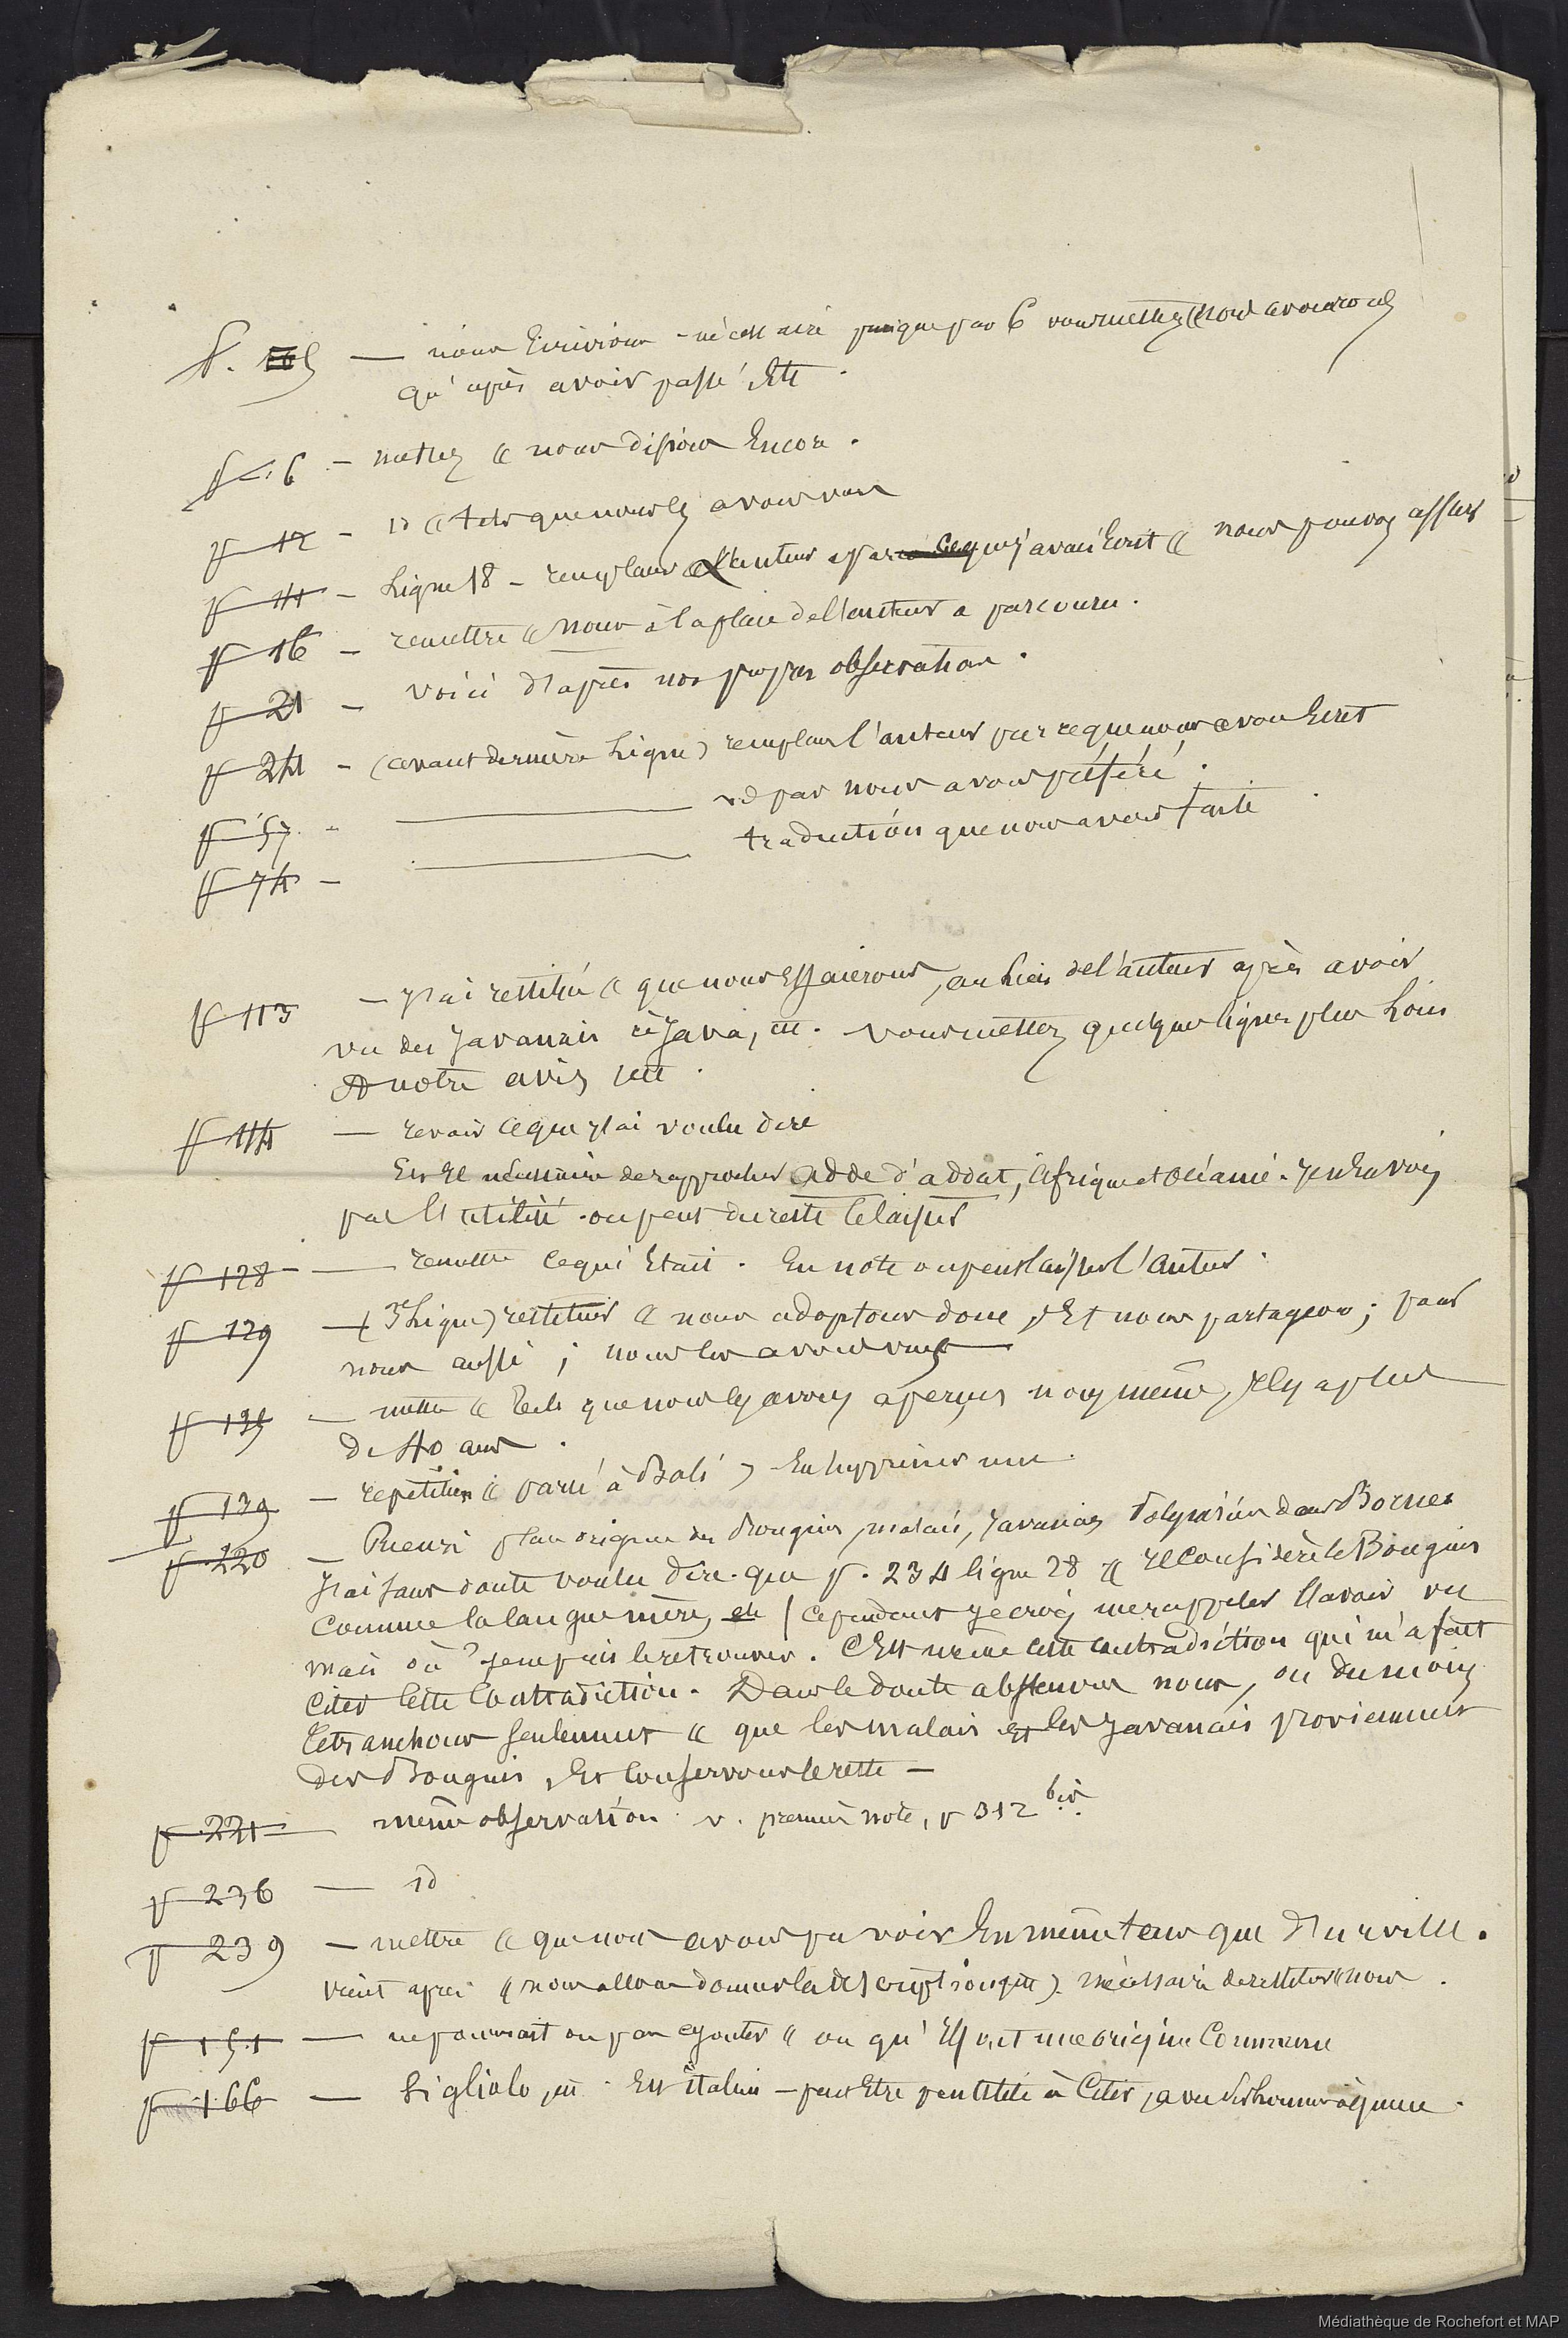 p. 5 — nous Écrivions - nécessaire puisque pag 6 vous mettez « nous avouerons
qu'après avoir passé Ett.
p. 6 - mettez « nous disions Encore.
p 12 - id « tels que nous les avons vus
p 14 - Ligne 18 - remplacer l'auteur par ce que j'avais Ecrit « nous pouvons assurer
p 16 - remettre « nous à la place de l'auteur a parcouru.
p 21 - voici d'après nos propres observations.
p 24 - (avant dernière Ligne) remplacer l'auteur par ce que nous avons Ecrit
p 57 - id par nous avons préféré.
p 74 - traduction que nous avons faite
p. 113 — J'ai restitué « que nous Essaierons, au Lieu de l'auteur après avoir
vu des Javanais à Java, ett. vous mettez quelques lignes plus Loin
A notre avis, ett.
p 114 — revoir ce que j'ai voulu dire
Est-il nécessaire de rapprocher adde d'addat, Afrique et Océanie. J'en En vois
pas l'utilité. on peut du reste le laisser
p 128 — remettre ce qui Etait. En note on peut laisser l'Auteur.
p 129 — (3e Ligne) restituer « nous adoptons donc, Et nous partageons; pour
nous aussi; nous les avons vus
p 135 — mettre « tels que nous les avons aperçus nous même, Il y a plus
de 40 ans.
p 139 — répétition « parlé à Bali » En supprimer une.
p. 220 — Rienzi place origine des Bouguis, malais, Javanais Polynésiens dans Bornéo
J'ai sans doute voulu dire que p. 234 ligne 28 « Il Considère le Bouguis
Comme la langue mère, ett / Cependant je crois me rappeler l'avoir vu
mais où ? je ne puis le retrouver. C'Est même cette contradiction qui m'a fait
Citer cette Contradiction. Dans le doute abstenons nous, ou du moins
retranchons seulement « que les malais et les Javanais proviennent
des Bouguis, Et Conservons le reste —
p. 221 — même observation. v. première note, p 312 bis.
p 236 — id
p 239 — mettre « que nous avons pu voir En même temps que d'Urville.
vient après « nous allons donner la description ett ». nécessaire de restituer « nous.
p 151 — ne pourrait on pas ajouter « ou qu'Ils ont une origine Commune
p 166 — Gigliolo, ett. Est italien — peut Etre pas utile à Citer, a vu